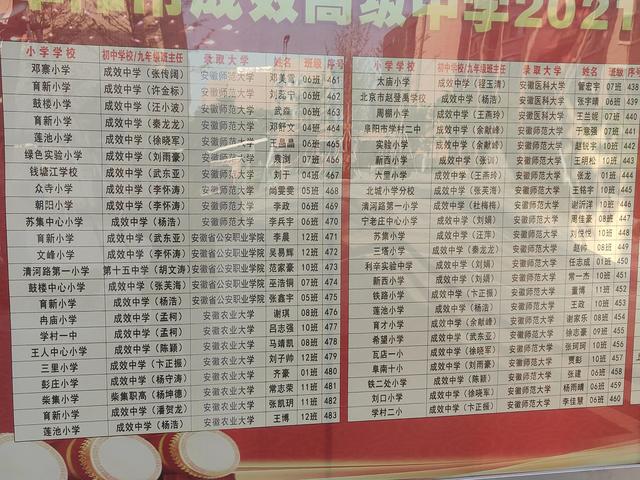 成效高级中学2021
小学学校 初中学校/九年级班主任 录取大学 姓名 班级 序号
邓寨小学 成效中学（张传阔） 安徽师范大学 邓美雪 06班 461
育新小学 成效中学（许金标） 安徽师范大学 刘蕊宁 06班 462
鼓楼小学 成效中学（汪小波） 安徽师范大学 武森 06班 463
育新小学 成效中学（秦龙龙） 安徽师范大学 邓舒文 04班 464
莲池小学 成效中学（徐晓军） 安徽师范大学 王晶晶 06班 465
绿色实验小学 成效中学（刘雨豪） 安徽师范大学 袁浏 07班 466
钱墉江学校 成效中学（武东亚） 安徽师范大学 刘于 04班 467
众寺小学 成效中学（李怀涛） 安徽师范大学 尚雯雯 05班 468
朝阳小学 成效中学（李怀涛） 安徽师范大学 李政 06班 469
苏集中心小学 成效中学（杨浩） 安徽师范大学 李兵宇 06班 470
育新小学 成效中学（武东亚） 安徽省公安职业学院 李晨 12班 471
文峰小学 成效中学（李怀涛） 安徽省公安职业学院 吴易辉 12班 472
清河路第一小学 第十五中学（胡文涛） 安徽省公安职业学院 范家豪 10班 473
鼓楼中心小学 成效中学（张英海） 安徽省公安职业学院 巫浩铜 07班 474
育新小学 成效中学（杨浩） 安徽省公安职业学院 张鑫宇 05班 475
冉庙小学 成效中学（孟柯） 安徽农业大学 谢琪 08班 476
学村一中 成效中学（孟柯） 安徽农业大学 吕志强 10班 477
王人中心小学 成效中学（陈颖） 安徽农业大学 马靖凯 08班 478
三里小学 成效中学（卞正振） 安徽农业大学 刘子帅 12班 479
彭庄小学 成效中学（杨守涛） 安徽农业大学 齐豪 01班 480
柴集小学 柴集职高（杨坤德） 安徽农业大学 常志荣 11班 481
育新小学 成效中学（潘贺龙） 安徽农业大学 张凯玥 11班 482
莲池小学 成效中学（杨浩） 安徽农业大学 王博 12班 483
小学学校 初中学校/九年级班主任 录取大学 姓名 班级 序号
太庙小学 成效中学（程玉清） 安徽医科大学 管宏宇 07班 438
北京市赵登禹学校 成效中学（杨浩） 安徽医科大学 张宇晴 06班 439
周棚小学 成效中学（王燕玲） 安徽医科大学 王兰妮 07班 440
阜阳市学村二中 成效中学（余献峰） 安徽师范大学 于意强 07班 441
实验小学 成效中学（余献峰） 安徽师范大学 赵锐宇 10班 442
新西小学 成效中学（张训） 安徽师范大学 王明松 10班 443
六里小学 成效中学（王燕玲） 安徽师范大学 张龙 01班 444
北城小学分校 成效中学（张英海） 安徽师范大学 王铭宇 10班 445
清河路第一小学 成效中学（杜梅梅） 安徽师范大学 谢沂洋 10班 446
宁老庄中心小学 成效中学（刘娟） 安徽师范大学 周佳豪 08班 447
苏集小学 成效中学（汪萍） 安徽师范大学 刘悦悦 10班 448
三塔小学 成效中学（秦龙龙） 安徽师范大学 赵帅 08班 449
利辛实验中学 成效中学（刘娟） 安徽师范大学 任志成 01班 450
新西小学 成效中学（刘娟） 安徽师范大学 常一杰 10班 451
铁路小学 成效中学（卞正振） 安徽师范大学 董博 11班 452
莲池小学 成效中学（杨浩） 安徽师范大学 王政 10班 453
育才小学 成效中学（余献峰） 安徽师范大学 谢家乐 08班 454
希望小学 成效中学（武东亚） 安徽师范大学 徐志豪 09班 455
瓦店一小 成效中学（徐晓军） 安徽师范大学 张珂珂 10班 456
阜南十小 成效中学（刘雨豪） 安徽师范大学 贾彭 10班 457
铁二处小学 成效中学（陈颖） 安徽师范大学 张建 06班 458
刘口小学 成效中学（徐晓军） 安徽师范大学 杨雨晴 06班 459
学村二小 成效中学（卞正振） 安徽师范大学 李佳慧 06班 460